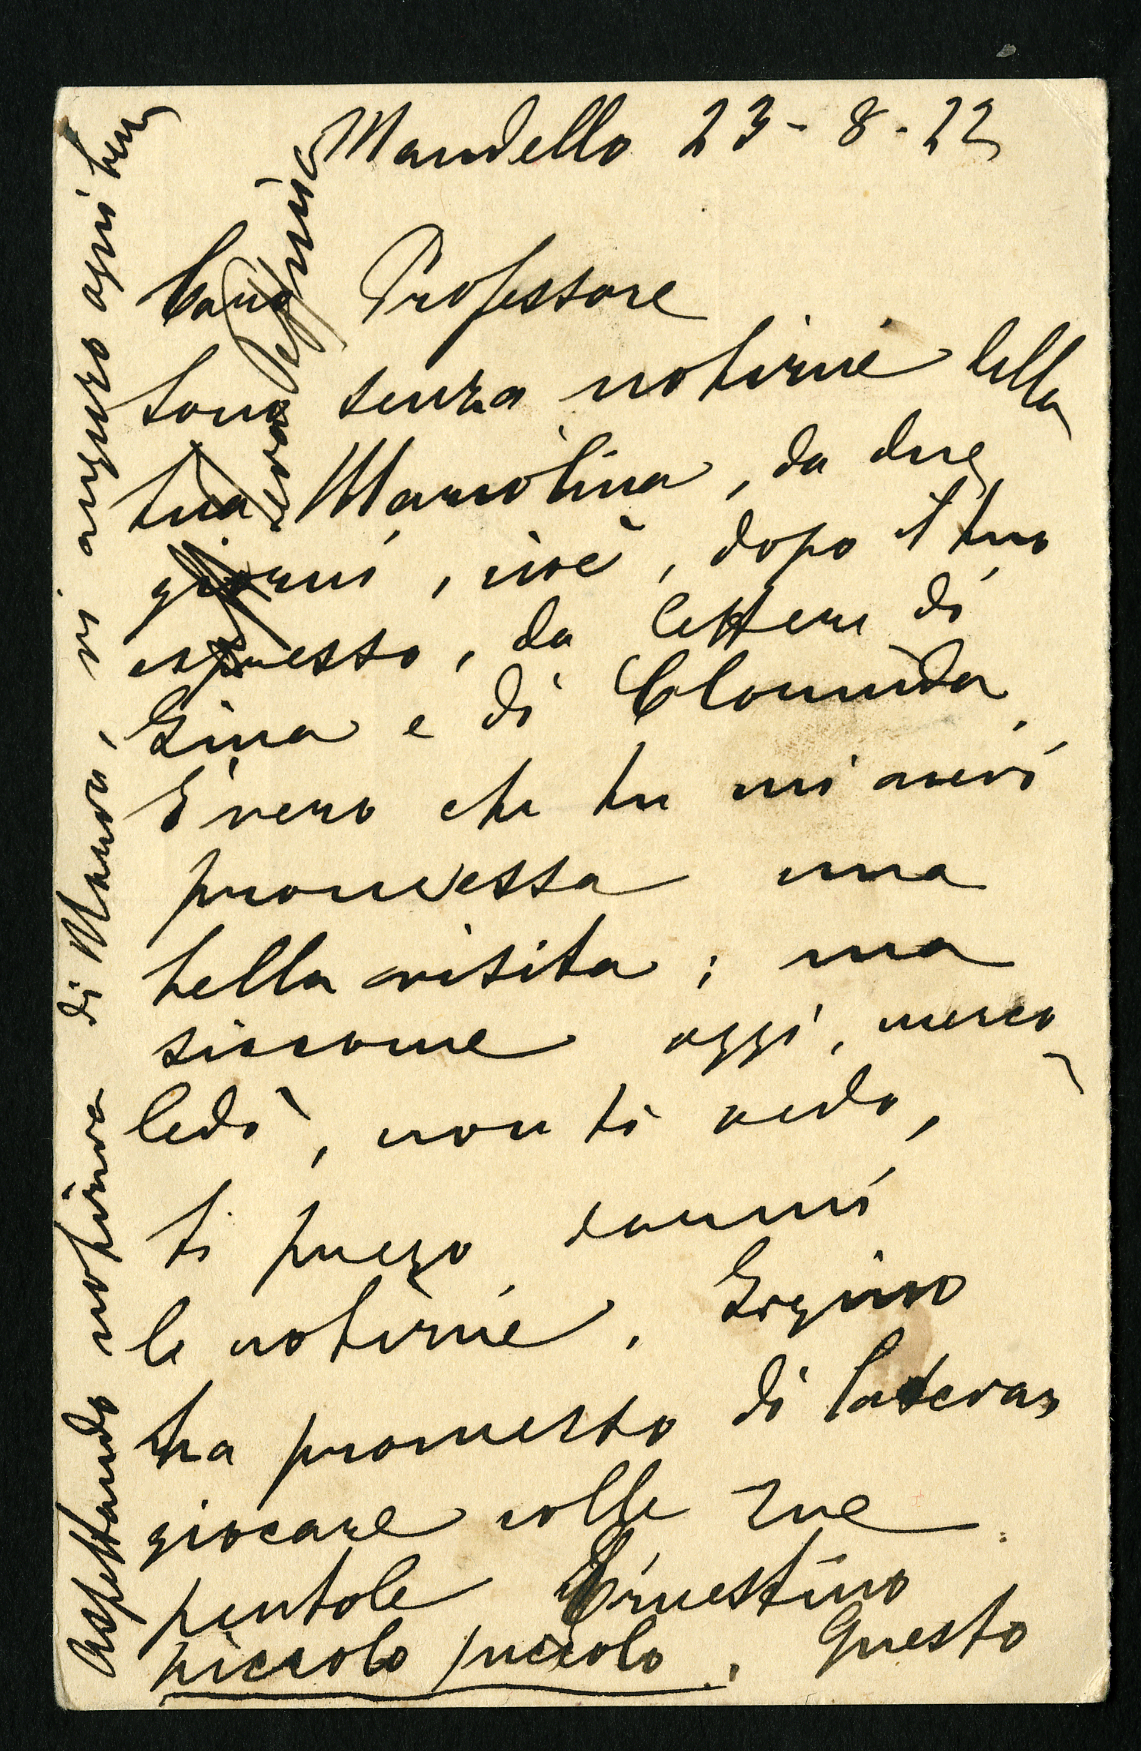 Mandello 23-8-22
Caro Professore
sono senza notizie della
tua Mariolina, da due
giorni, cioè, dopo il tuo
espresso, da lettere di
Gina e di Clorinda.
È vero che tu mi avevi
promessa una
bella visita; ma
siccome oggi, merco
ledì, non ti vedo,
ti prego dammi
le notizie. Gigino
ha promesso di lasciar
giocare colle sue
pentole Ernestino
piccolo piccolo. Questo
Aspettando notizia di Maria, vi auguro ogni bene